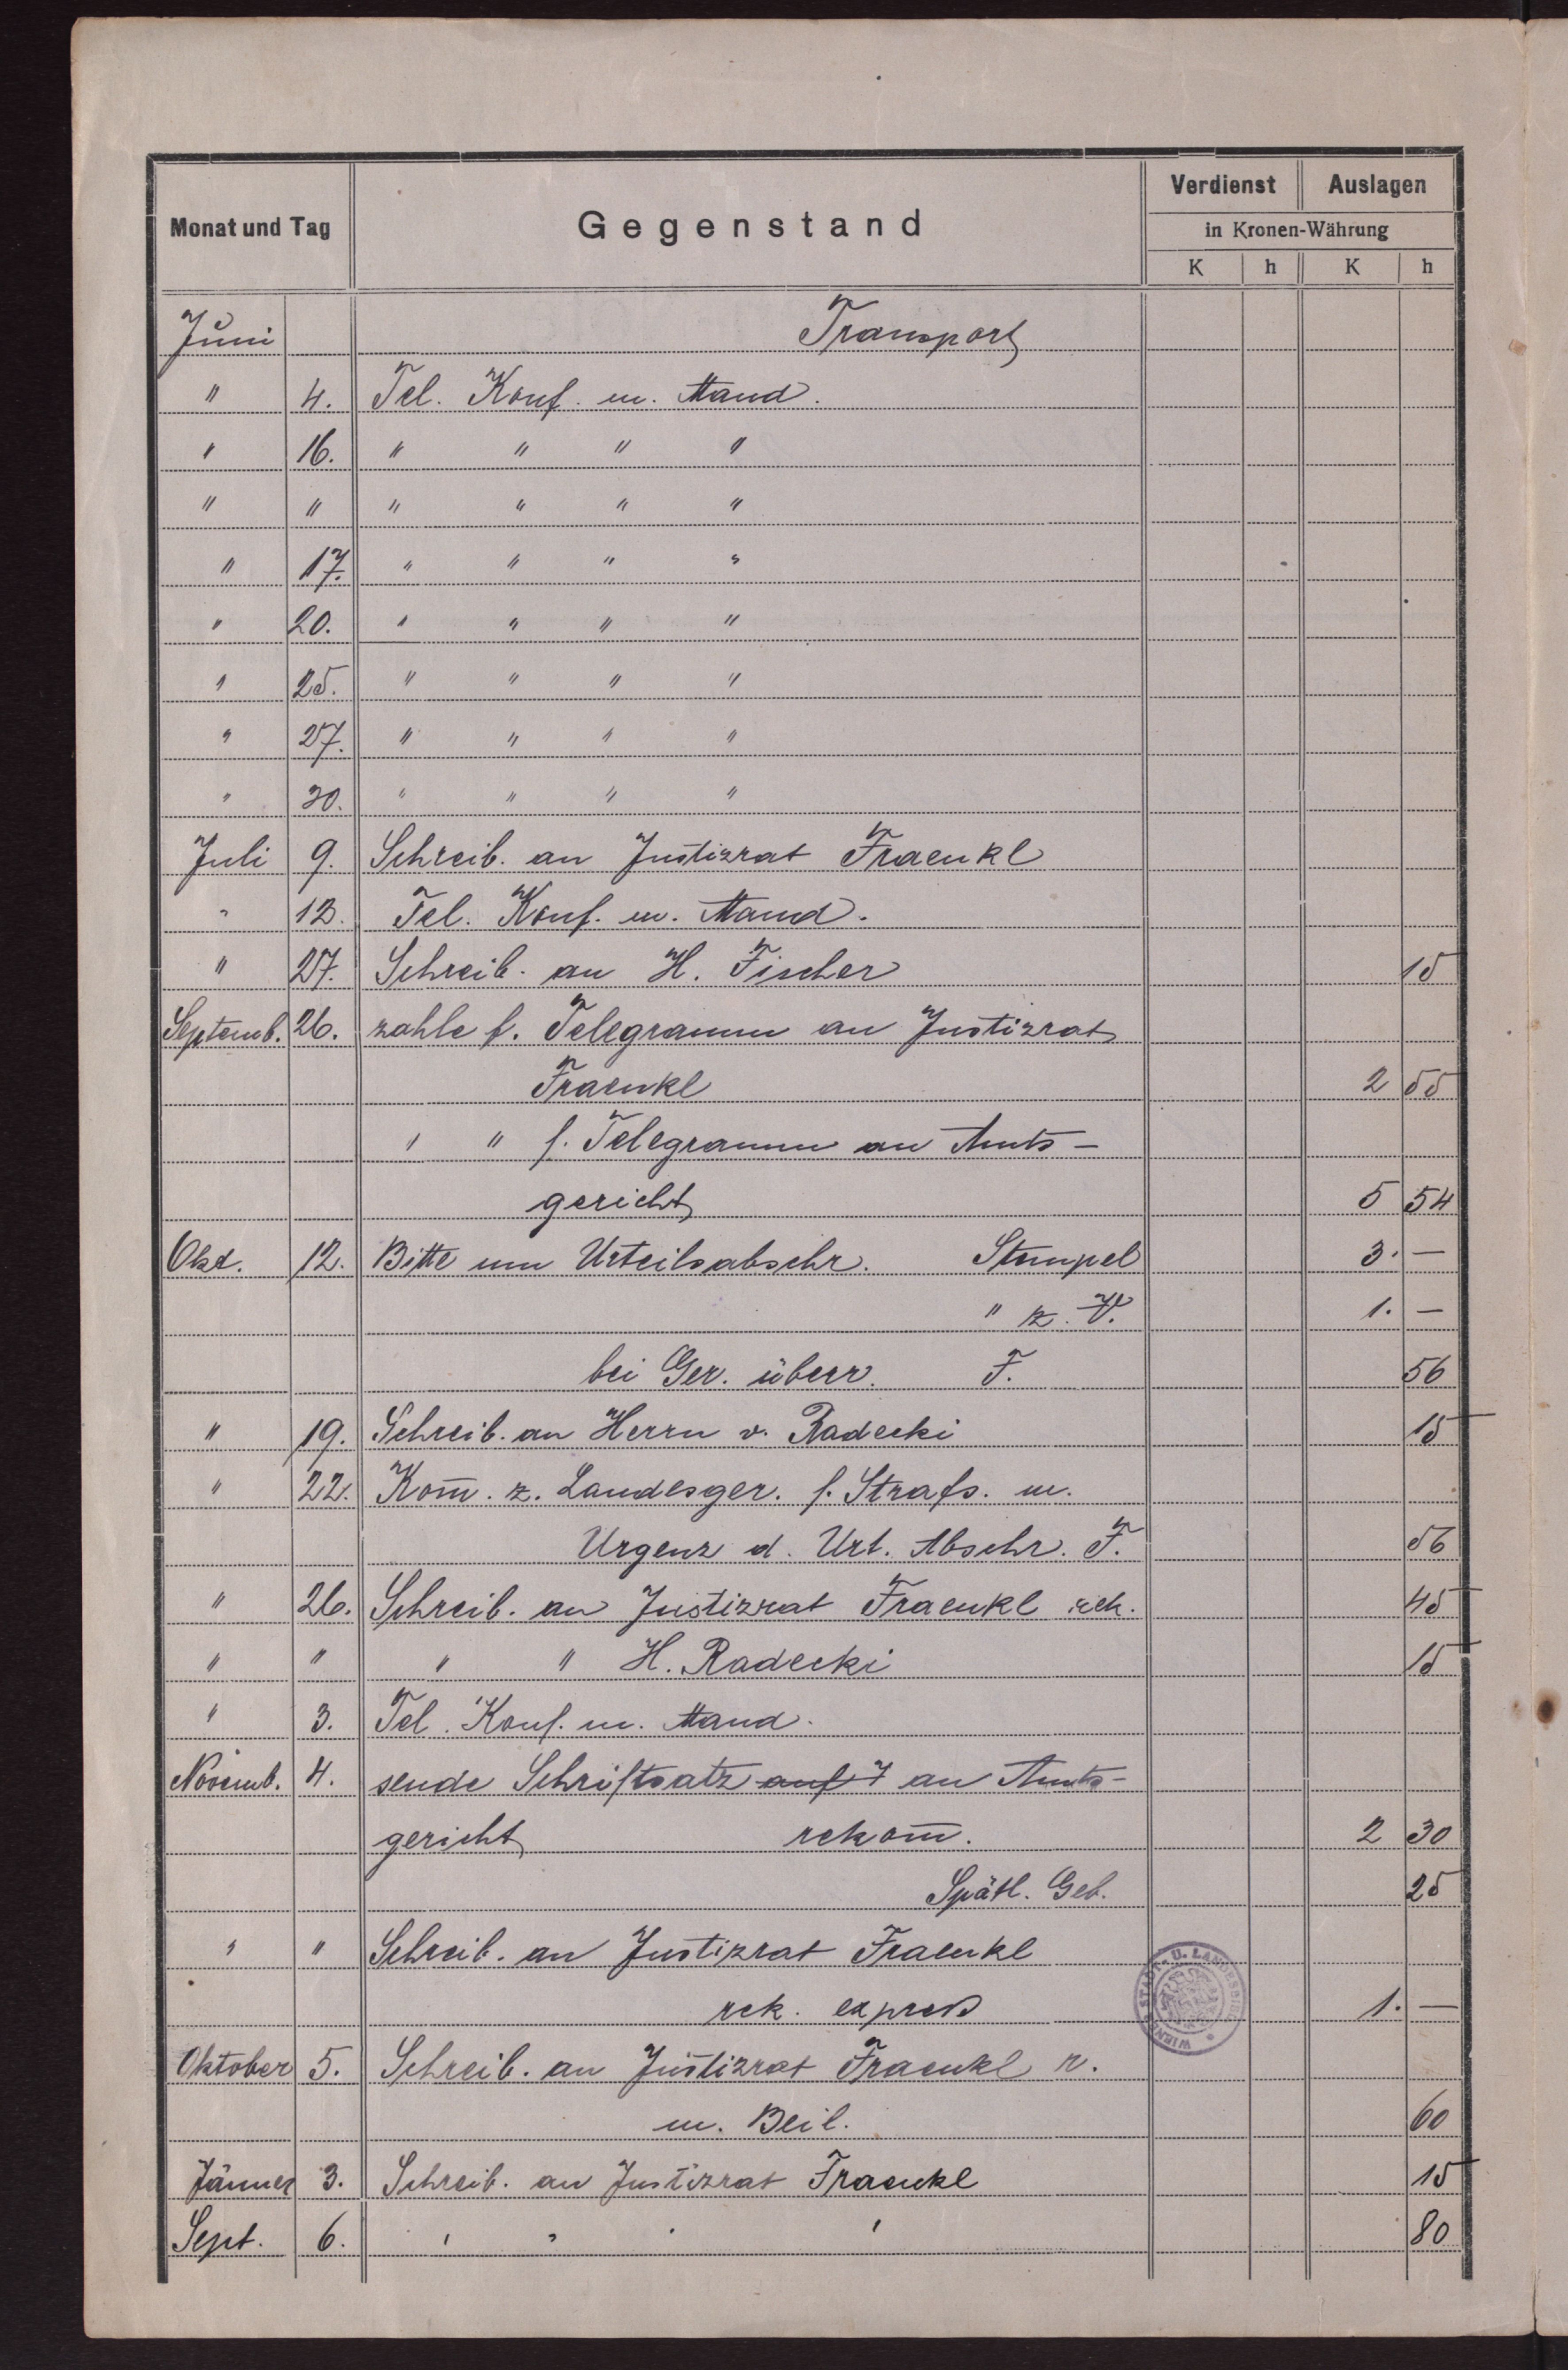 Monat und Tag Gegenstand Verdienst Auslagen
in Kronen-Währung
K h K h
Juni Transport
" 4. Tel. Konf. m. Mand.
" 16. " " " "
" " " " " "
" 17. " " " "
" 20. " " " "
" 25. " " " "
" 27. " " " "
" 30. " " " "
Juli 9. Schreib. an Justizrat Fraenkl
" 13. Tel. Konf. m. Mand.
" 27. Schreib. an H. Fischer 15
Septemb. 26. zahle f. Telegramm an Justizrat
Fraenkl 2 55
" " f. Telegramm an Amts-
gericht 5 54
Okt. 12. Bitte um Urteilsabschr. Stempel 3. —
" z. V. 1. —
bei Ger. überr. F. 56
" 19. Schreib. an Herrn v. Radecki 15
" 22. Kom̄. z. Landesger. f. Strafs. m.
Urgenz d. Urt. Abschr. F. 56
" 26. Schreib. an Justizrat Fraenkl rek. 45
" " " " H. Radecki 15
" 3. Tel. Konf. m. Mand.
Novemb. 4. sende Schriftsatz auf 7 an Amts-
gericht rekom̄. 2 30
Spätl. Geb. 25
" " Schreib. an Justizrat Fraenkl
rek. express 1. —
WIENER STADT- U. LANDESBIBL.
Oktober 5. Schreib. an Justizrat Fraenkl r.
m. Beil. 60
Jänner 3. Schreib. an Justizrat Fraenkl 15
Sept. 6. " " " " 80